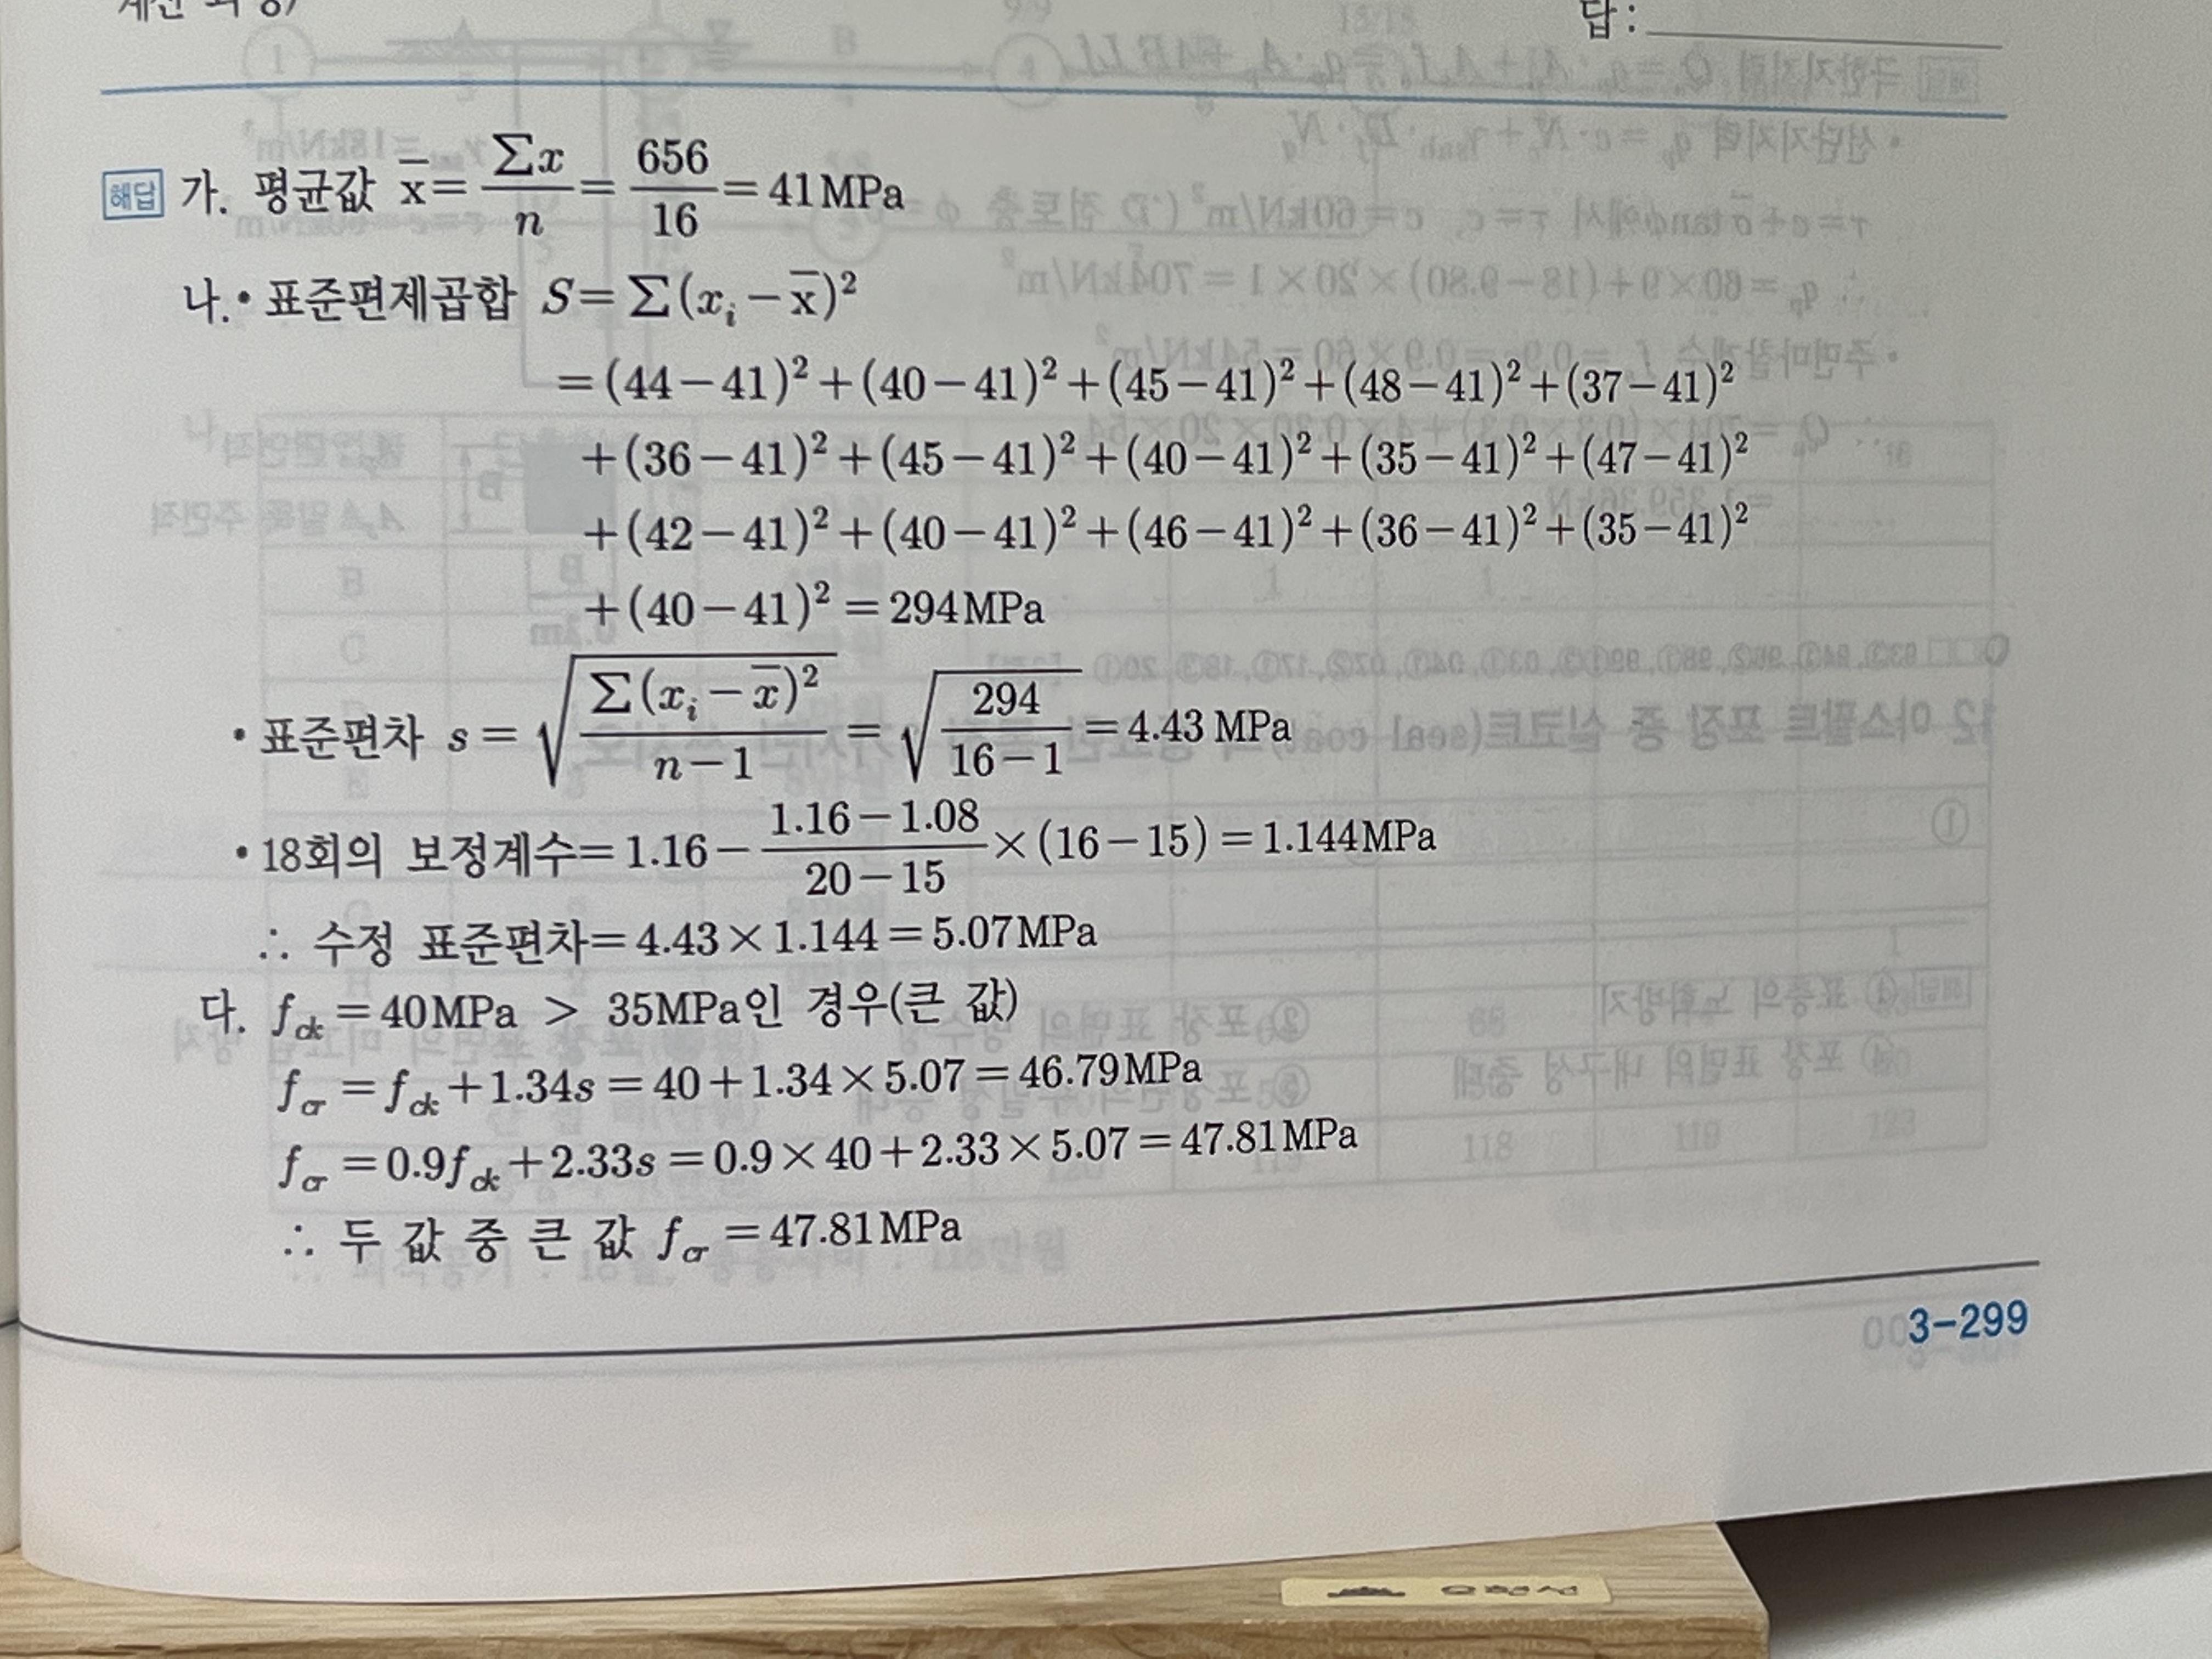 답 :
해답 가. 평균값 x̄ = Σx/n = 656/16 = 41MPa
나. • 표준편제곱합 S = Σ(xᵢ − x̄)²
= (44−41)² + (40−41)² + (45−41)² + (48−41)² + (37−41)²
+ (36−41)² + (45−41)² + (40−41)² + (35−41)² + (47−41)²
+ (42−41)² + (40−41)² + (46−41)² + (36−41)² + (35−41)²
+ (40−41)² = 294MPa
• 표준편차 s = √(Σ(xᵢ − x̄)²/(n−1)) = √(294/(16−1)) = 4.43 MPa
• 18회의 보정계수 = 1.16 − (1.16−1.08)/(20−15) × (16−15) = 1.144MPa
∴ 수정 표준편차 = 4.43 × 1.144 = 5.07MPa
다. f_ck = 40MPa > 35MPa인 경우(큰 값)
f_cr = f_ck + 1.34s = 40 + 1.34 × 5.07 = 46.79MPa
f_cr = 0.9f_ck + 2.33s = 0.9 × 40 + 2.33 × 5.07 = 47.81MPa
∴ 두 값 중 큰 값 f_cr = 47.81MPa
3-299